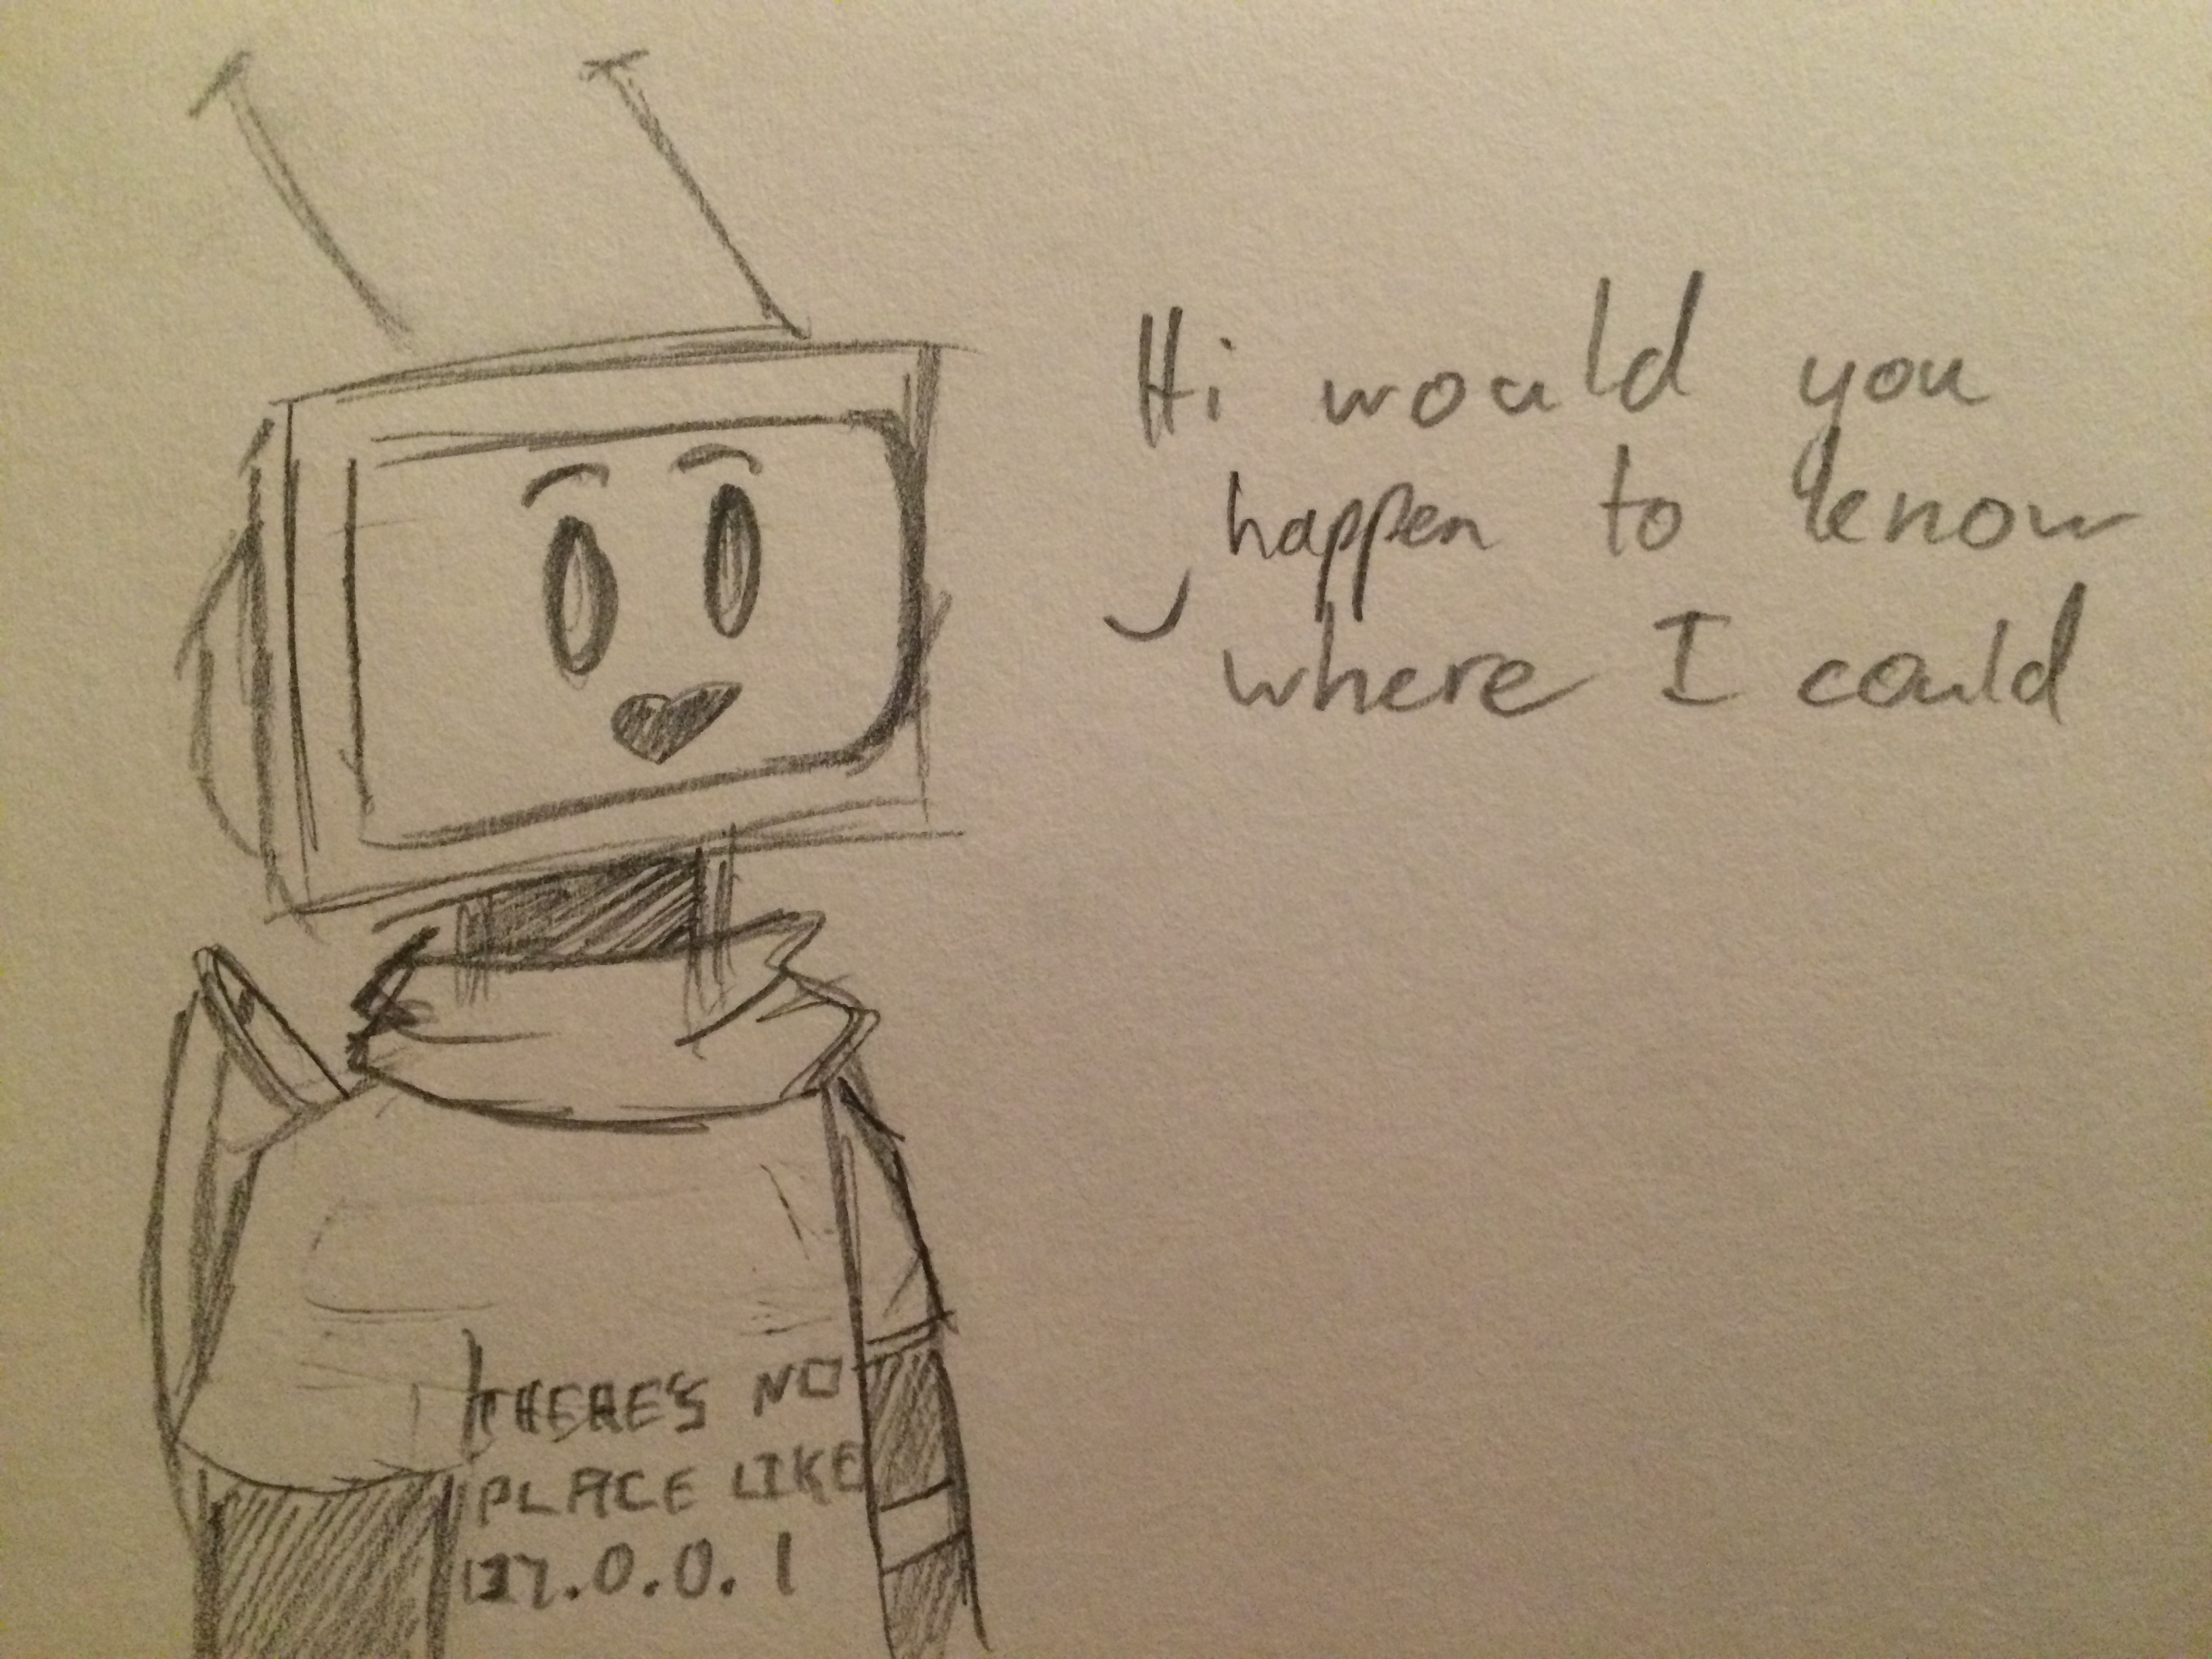 Hi would you
happen to know
where I could
THERE'S NO
PLACE LIKE
127.0.0.1